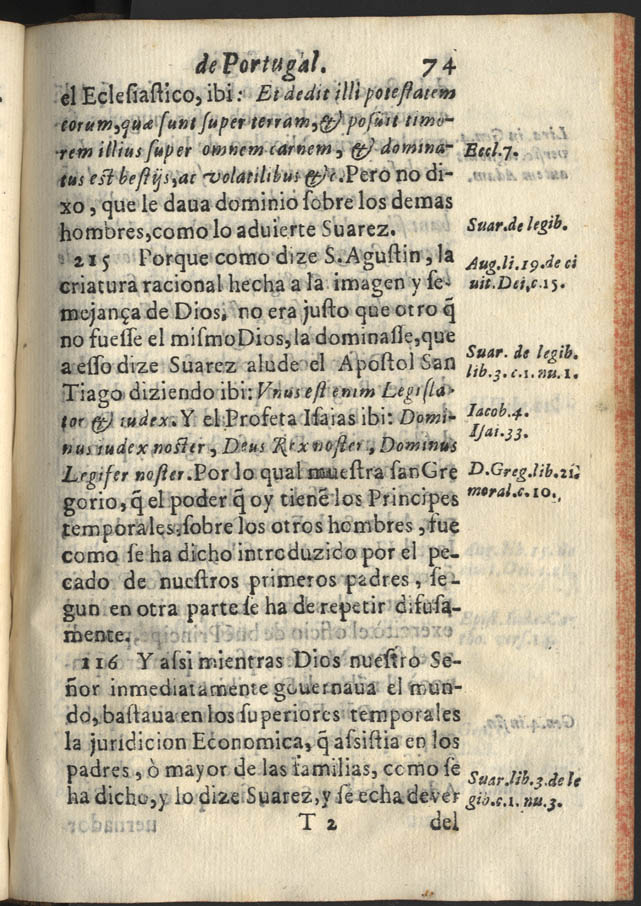 de Portugal. 74
el Eclesiastico, ibi: Et dedit illi potestatem
eorum, quæ sunt super terram, & posuit timo-
rem illius super omnem carnem, & domina-
tus est bestijs, ac volatilibus &c. Pero no di-
xo, que le daua dominio sobre los demas
hombres, como lo aduierte Suarez.
215 Porque como dize S. Agustin, la
criatura racional hecha a la imagen y se-
mejança de Dios, no era justo que otro q̃
no fuesse el mismo Dios, la dominasse, que
a esso dize Suarez alude el Apostol San
Tiago diziendo ibi: Vnus est enim Legisla-
tor & iudex. Y el Profeta Isaias ibi: Domi-
nus iudex noster, Deus Rex noster, Dominus
Legifer noster. Por lo qual muestra san Gre
gorio, q̃ el poder q̃ oy tienẽ los Principes
temporales, sobre los otros hombres, fue
como se ha dicho introduzido por el pe-
cado de nuestros primeros padres, se-
gun en otra parte se ha de repetir difusa-
mente.
116 Y assi mientras Dios nuestro Se-
ñor inmediatamente gouernaua el mun-
do, bastaua en los superiores temporales
la juridicion Economica, q̃ assistia en los
padres, ò mayor de las familias, como se
ha dicho, y lo dize Suarez, y se echa de ver
T 2 del
Eccl. 7.
Suar. de legib.
Aug. li. 19. de ci
uit. Dei, c. 15.
Suar. de legib.
lib. 3. c. 1. nu. 1.
Iacob. 4.
Isai. 33.
D. Greg. lib. 21.
moral. c. 10.
Suar. lib. 3. de le
gib. c. 1. nu. 3.